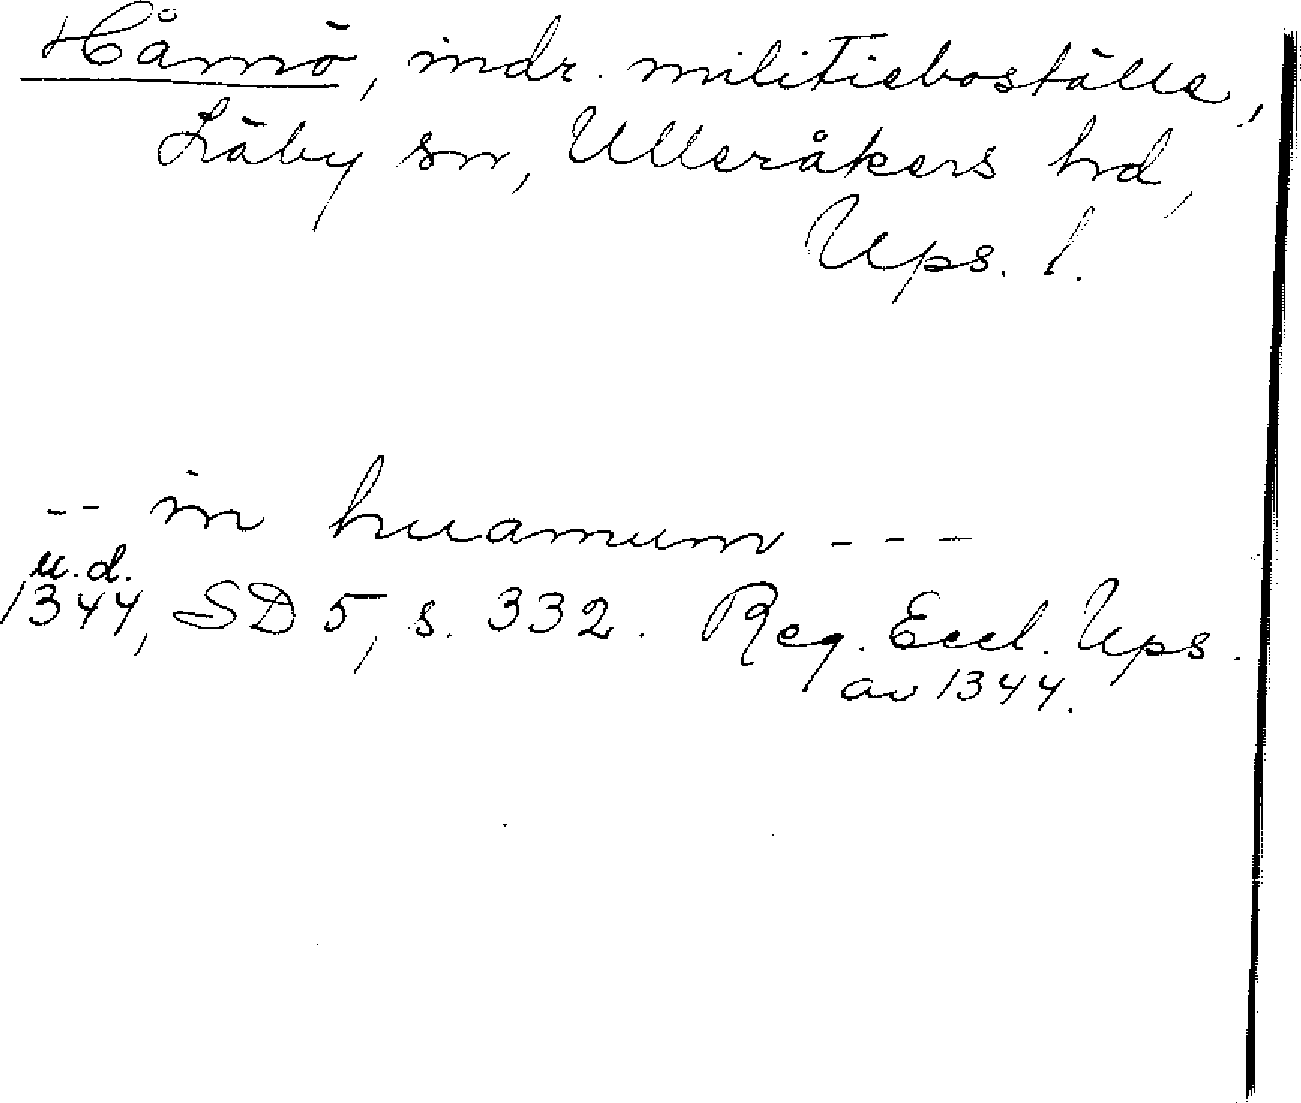 Håmö, indr. militieboställe,
Läby sn, Ulleråkers hd,
Ups. l.
-- in huamum ---
u.d.
1344, SD 5, s. 332. Reg. Eccl. Ups.
av 1344.